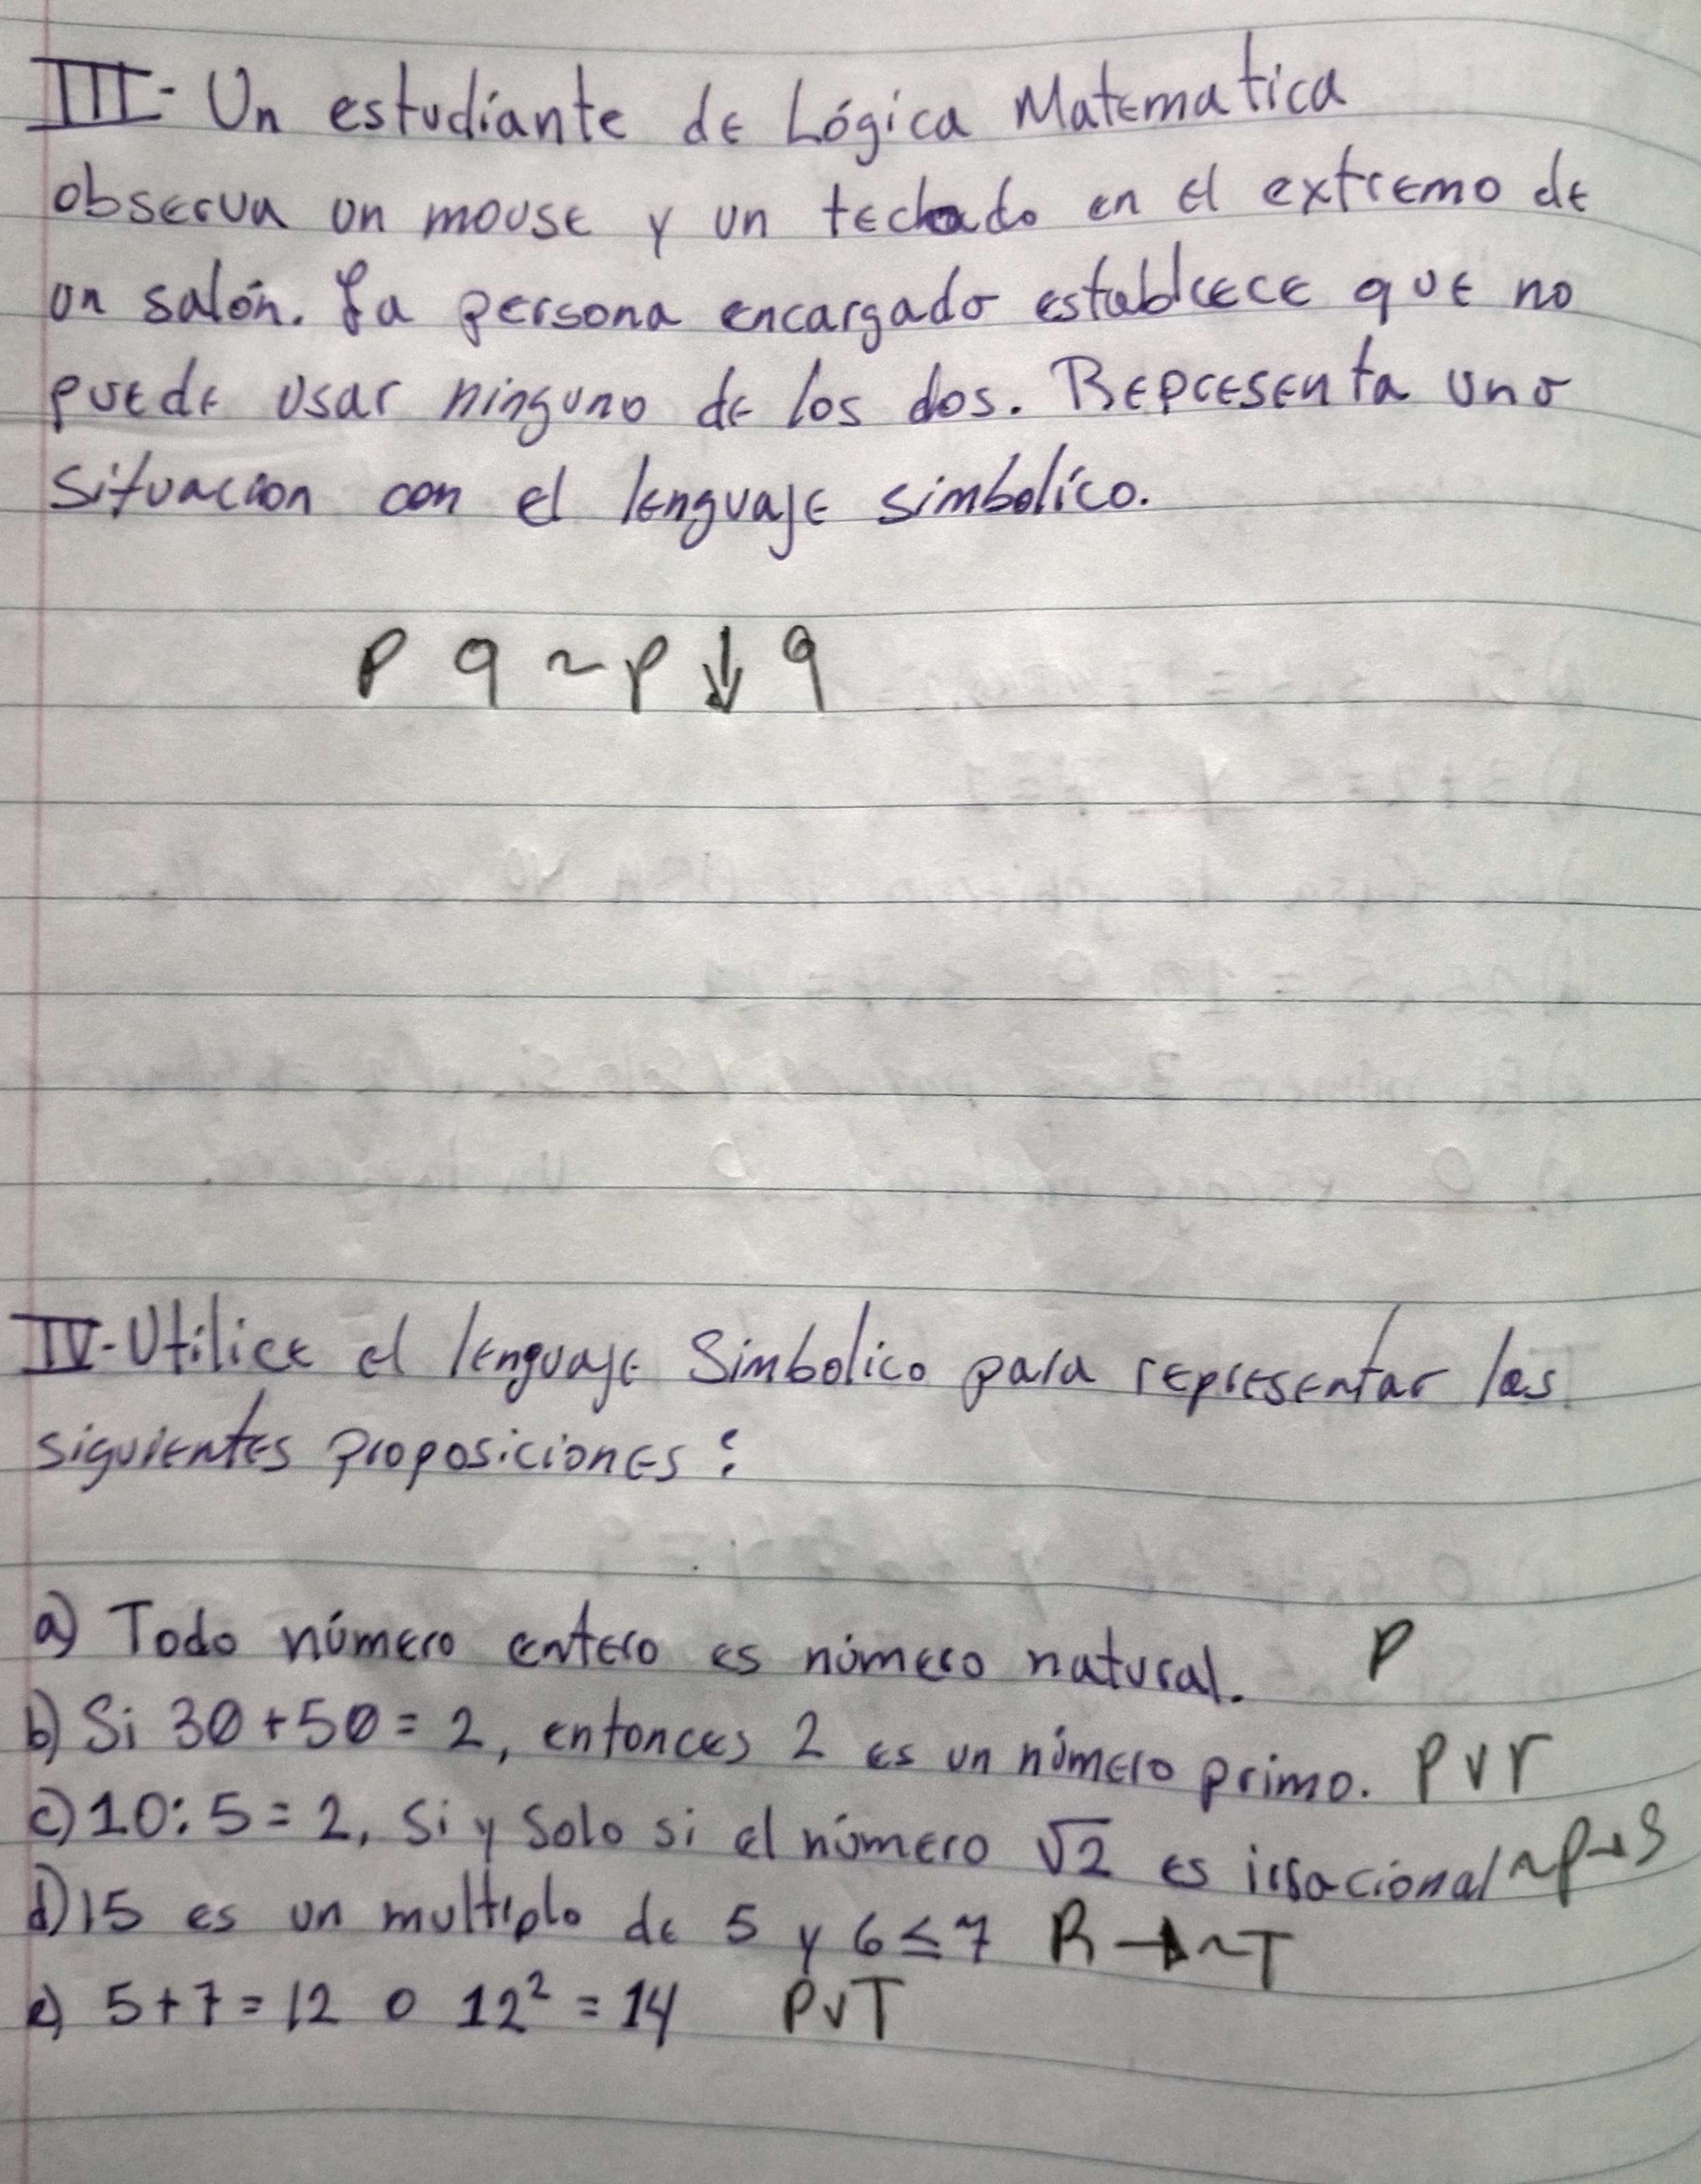 III- Un estudiante de Lógica Matematica
observa un mouse y un teclado en el extremo de
un salón. La persona encargado establecece que no
puede usar ninguno de los dos. Representa uno
situacion con el lenguaje simbolico.
P q ~ p ↓ q
IV- Utilice el lenguaje Simbolico para representar las
siguientes proposiciones:
a) Todo número entero es número natural. P
b) Si 30+50=2, entonces 2 es un número primo. P v r
c) 10:5=2, Si y Solo si el número √2 es irracional ~p→s
d) 15 es un multiplo de 5 y 6≤7 R→~T
e) 5+7=12 o 12²=14 P v T